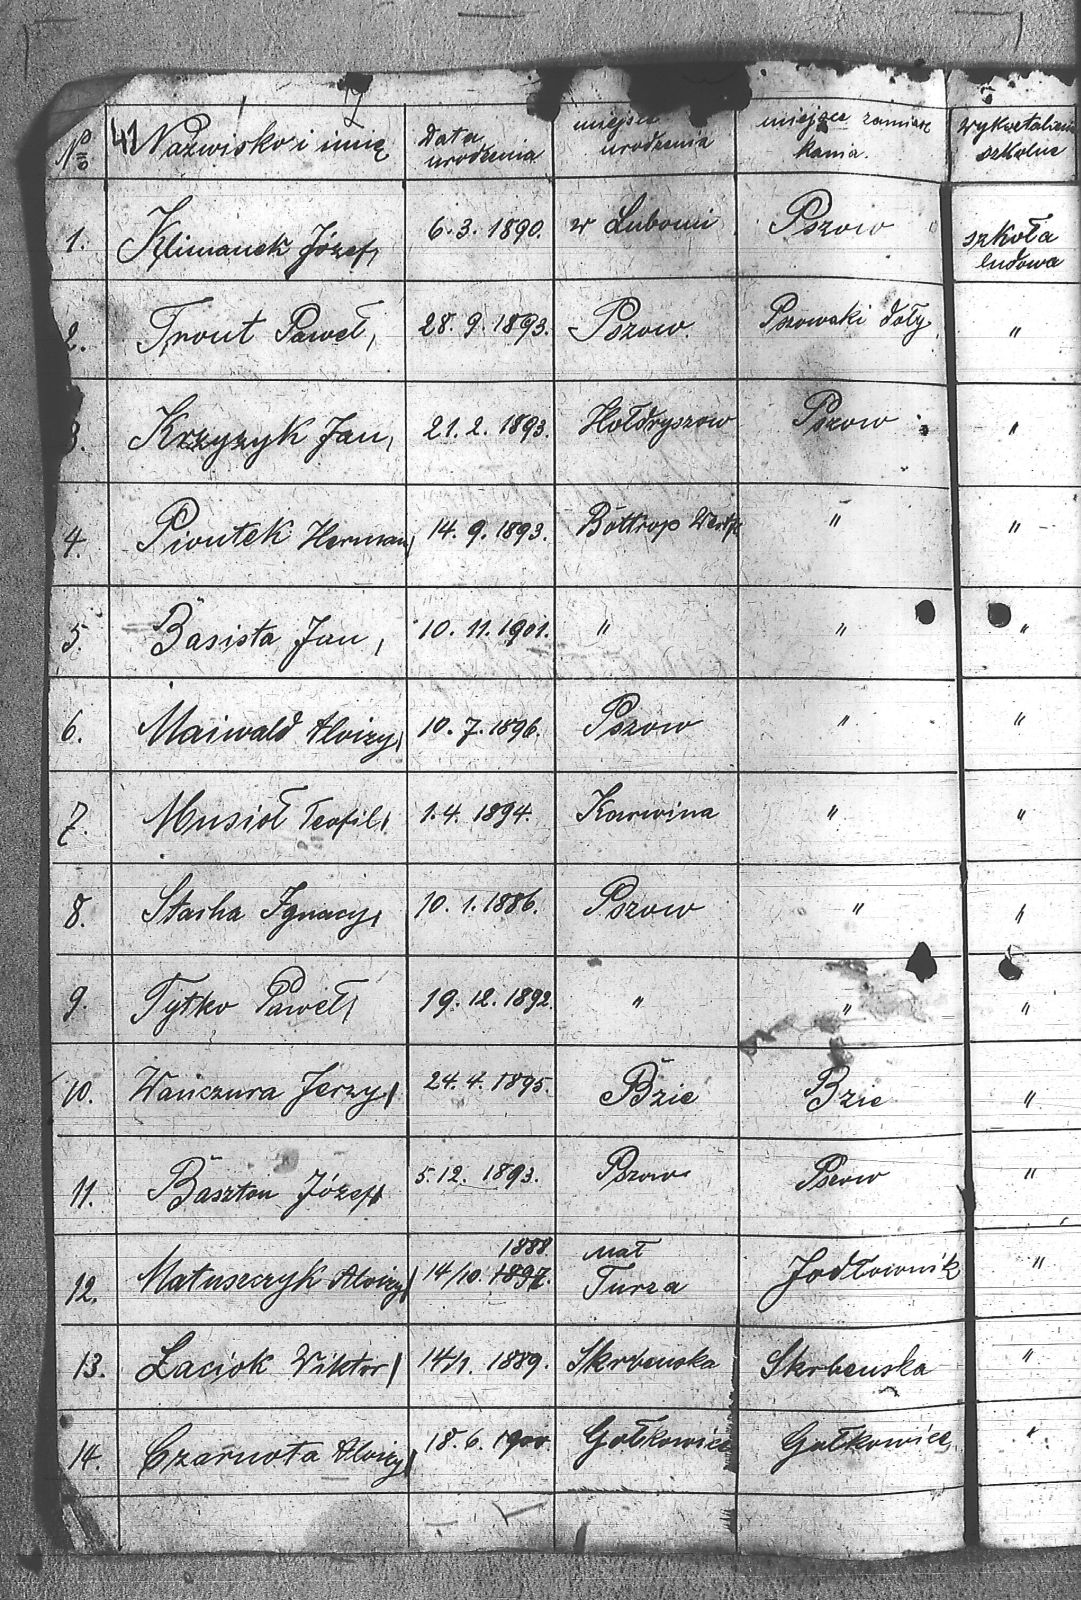 No 41 Nazwisko i imię Data urodzenia miejsce urodzenia miejsce zamieszkania. wykształcenie szkolne
1. Klimanek Józef, 6.3.1890. w Lubomi Pszow szkoła ludowa
2. Tront Paweł, 28.9.1893. Pszow. Pszowski doły "
3. Krzyzyk Jan, 21.2.1893. Hołdryszow Pszow "
4. Piontek Herman 14.9.1893. Bottrop Westf. " "
5. Basista Jan, 10.11.1901. " " "
6. Maiwald Aloizy 10.7.1896. Pszow " "
7. Musioł Teofil 1.4.1894. Karwina " "
8. Stacha Ignacy 10.1.1886. Pszow " "
9. Tytko Paweł 19.12.1892. " " "
10. Wańczura Jerzy 24.4.1895. Bzie Bzie "
11. Baszton Józef 5.12.1893. Pszow Pszow "
12. Matuszczyk Aloizy 14/10. 1897. 1888. mał Turza Jodłownik "
13. Łaciok Wiktor 14/1. 1889. Skrbenska Skrbenska "
14. Czarnota Aloizy 18.6.1900. Gołkowice Gołkowice "